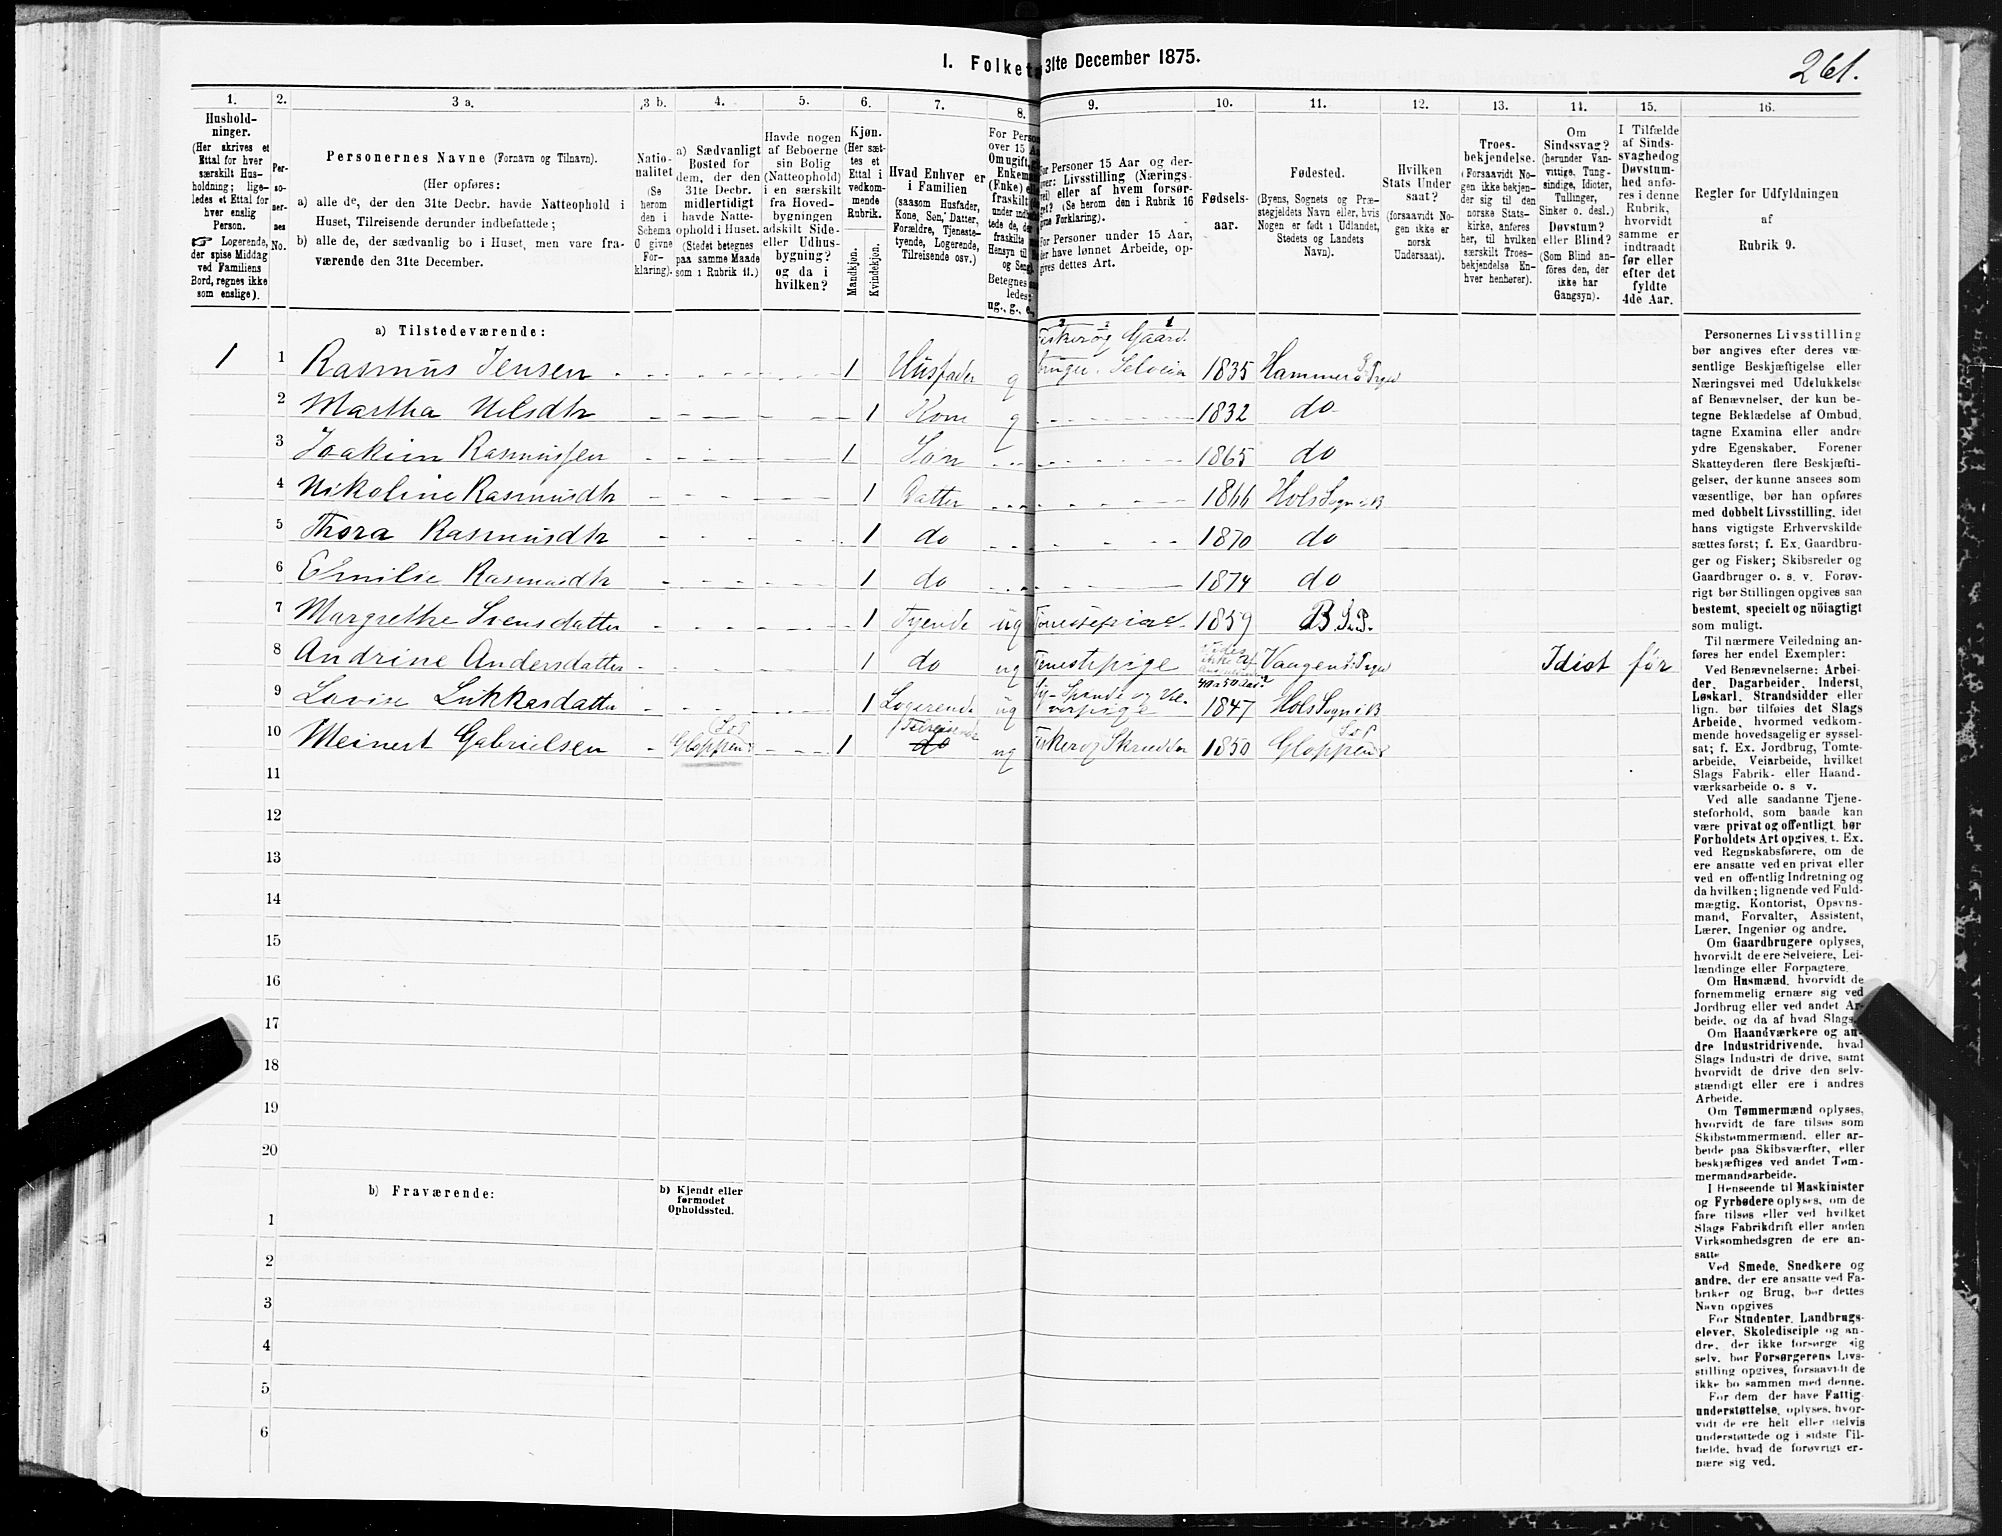 I. Folket 31te December 1875.
261.
1. 2. 3 a. 3 b. 4. 5. 6. 7. 8. 9. 10. 11. 12. 13. 14. 15. 16.
Hushold-
ninger.
(Her skrives et
Ettal for hver
særskilt Hus-
holdning; lige-
ledes et Ettal for
hver enslig
Person.
☞ Logerende,
der spise Middag
ved Familiens
Bord, regnes ikke
som enslige).
Per-
so-
ner-
nes
No.
Personernes Navne (Fornavn og Tilnavn).
(Her opføres:
a) alle de, der den 31te Decbr. havde Natteophold i
Huset, Tilreisende derunder indbefattede;
b) alle de, der sædvanlig bo i Huset, men vare fra-
værende den 31te December.
Natio-
nalitet
(Se
herom
den i
Schema
O givne
For-
klaring).
a) Sædvanligt
Bosted for
dem, der den
31te Decbr.
midlertidigt
havde Natte-
ophold i Huset.
(Stedet betegnes
paa samme Maade
som i Rubrik 11.)
Havde nogen
af Beboerne
sin Bolig
(Natteophold)
i en særskilt
fra Hoved-
bygningen
adskilt Side-
eller Udhus-
bygning?
og da i
hvilken?
Kjøn.
(Her sæt-
tes et
Ettal i
vedkom-
mende
Rubrik.
Mandkjøn.
Kvindekjøn.
Hvad Enhver er
i Familien
(saasom Husfader,
Kone, Søn, Datter,
Forældre, Tjeneste-
tyende, Logerende,
Tilreisende osv.)
For Perso
over 15 A
Omugift,
Enkema
(Enke) e
fraskilt
under indb
tede de, de
fraskilte
Hensyn til
og Seng
Betegnes
ledes:
ug., g., e.,
For Personer 15 Aar og der-
over: Livsstilling (Nærings-
vei) eller af hvem forsør-
get? (Se herom den i Rubrik 16
givne Forklaring).
For Personer under 15 Aar,
der have lønnet Arbeide, op-
gives dettes Art.
Fødsels-
aar.
Fødested.
(Byens, Sognets og Præ-
stegjeldets Navn eller, hvis
Nogen er født i Udlandet,
Stedets og Landets
Navn).
Hvilken
Stats Under
saat?
(forsaavidt No-
gen ikke er
norsk
Undersaat).
Troes-
bekjendelse.
(Forsaavidt No-
gen ikke bekjen-
der sig til den
norske Stats-
kirke, anføres
her, til hvilken
særskilt Troes-
bekjendelse En-
hver henhører).
Om
Sindssvag?
(herunder Van-
vittige, Tung-
sindige, Idioter,
Tullinger,
Sinker o. desl.)
Døvstum?
eller Blind?
(Som Blind an-
føres den, der
ikke har
Gangsyn).
I Tilfælde
af Sinds-
svaghed og
Døvstum-
hed anfø-
res i denne
Rubrik,
hvorvidt
samme er
indtraadt
før eller
efter det
fyldte
4de Aar.
Regler for Udfyldningen
af
Rubrik 9.
a) Tilstedeværende:
1 1 Rasmus Jensen 1 Husfader g Fisker og Gaard
bruger Selveier 1835 Hammerø Prgj
2 Martha Nelsdtr 1 Kone g 1832 do
3 Joakim Rasmussen 1 Søn 1865 do
4 Nikoline Rasmusdtr 1 Datter 1866 Hols Sogn i B
5 Thora Rasmusdtr 1 do 1870 do
6 Emilie Rasmusdtr 1 do 1874 do
7 Margrethe Svensdatter 1 Tyende ug Tjenestepige 1859 B S.P.
8 Andrine Andersdatter 1 do ug Tjenestepige 40 a 50 Aar? Vaagens Prgj Idiot før
9 Lovise Lukkasdatter 1 Logerende ug Sy- Spinde og Væ-
verpige 1847 Hols Sogn i B
10 Meinert Gabrielsen Gloppen S o P 1 Tilreisende do ug Fisker og Skrædder 1850 Gloppen S o P
11
12
13
14
15
16
17
18
19
20
b) Fraværende:
b) Kjendt eller
formodet
Opholdssted.
1
2
3
4
5
6
Personernes Livsstilling
bør angives efter deres væ-
sentlige Beskjæftigelse eller
Næringsvei med Udelukkelse
af Benævnelser, der kun be-
tegne Beklædelse af Ombud,
tagne Examina eller andre
ydre Egenskaber. Forener
Skatteyderen flere Beskjæfti-
gelser, der kunne ansees som
væsentlige, bør han opføres
med dobbelt Livsstilling, idet
hans vigtigste Erhvervskilde
sættes først; f. Ex. Gaardbru-
ger og Fisker; Skibsreder og
Gaardbruger o. s. v. Forøv-
rigt bør Stillingen opgives saa
bestemt, specielt og nöiagtigt
som muligt.
Til nærmere Veiledning an-
føres her endel Exempler:
Ved Benævnelserne: Arbei-
der, Dagarbeider, Inderst,
Løskarl, Strandsidder eller
lign. bør tilføies det Slags
Arbeide, hvormed vedkom-
mende hovedsagelig er syssel-
sat; f. Ex. Jordbrug, Tomte-
arbeide, Veiarbeide, hvilket
Slags Fabrik- eller Haand-
værksarbeide o. s. v.
Ved alle saadanne Tjene-
steforhold, som baade kan
være privat og offentligt, bør
Forholdets Art opgives, t. Ex.
ved Regnskabsførere, om de
ere ansatte ved en privat eller
ved en offentlig Indretning og
da hvilken; lignende ved Fuld-
mægtig, Kontorist, Opsyns-
mand, Forvalter, Assistent,
Lærer, Ingeniør og andre.
Om Gaardbrugere oplyses,
hvorvidt de ere Selveiere, Lei-
lændinge eller Forpagtere.
Om Husmænd, hvorvidt de
fornemmelig ernære sig ved
Jordbrug eller ved andet Ar-
beide, og da af hvad Slags.
Om Haandværkere og an-
dre Industridrivende, hvad
Slags Industri de drive, samt
hvorvidt de drive den selv-
stændigt eller ere i andres
Arbeide.
Om Tømmermænd oplyses,
hvorvidt de fare tilsøs som
Skibstømmermænd, eller ar-
beide paa Skibsværfter, eller
beskjæftiges ved andet Tøm-
mermandsarbeide.
I Henseende til Maskinister
og Fyrbødere oplyses, om de
fare tilsøs eller ved hvilket
Slags Fabrikdrift eller anden
Virksomhedsgren de ere an-
satte
Ved Smede, Snedkere og
andre, der ere ansatte ved Fa-
briker og Brug, bør dettes
Navn opgives
For Studenter, Landbrugs-
elever, Skoledisciple og an-
dre, der ikke forsørge sig
selv, bør Forsørgerens Livs-
stilling opgives, forsaavidt de
ikke bo sammen med denne.
For dem, der have Fattig-
understøttelse, oplyses, hvor-
vidt de ere helt eller delvis
understøttede og i sidste Til-
fælde, hvad de forøvrigt er-
nære sig ved.